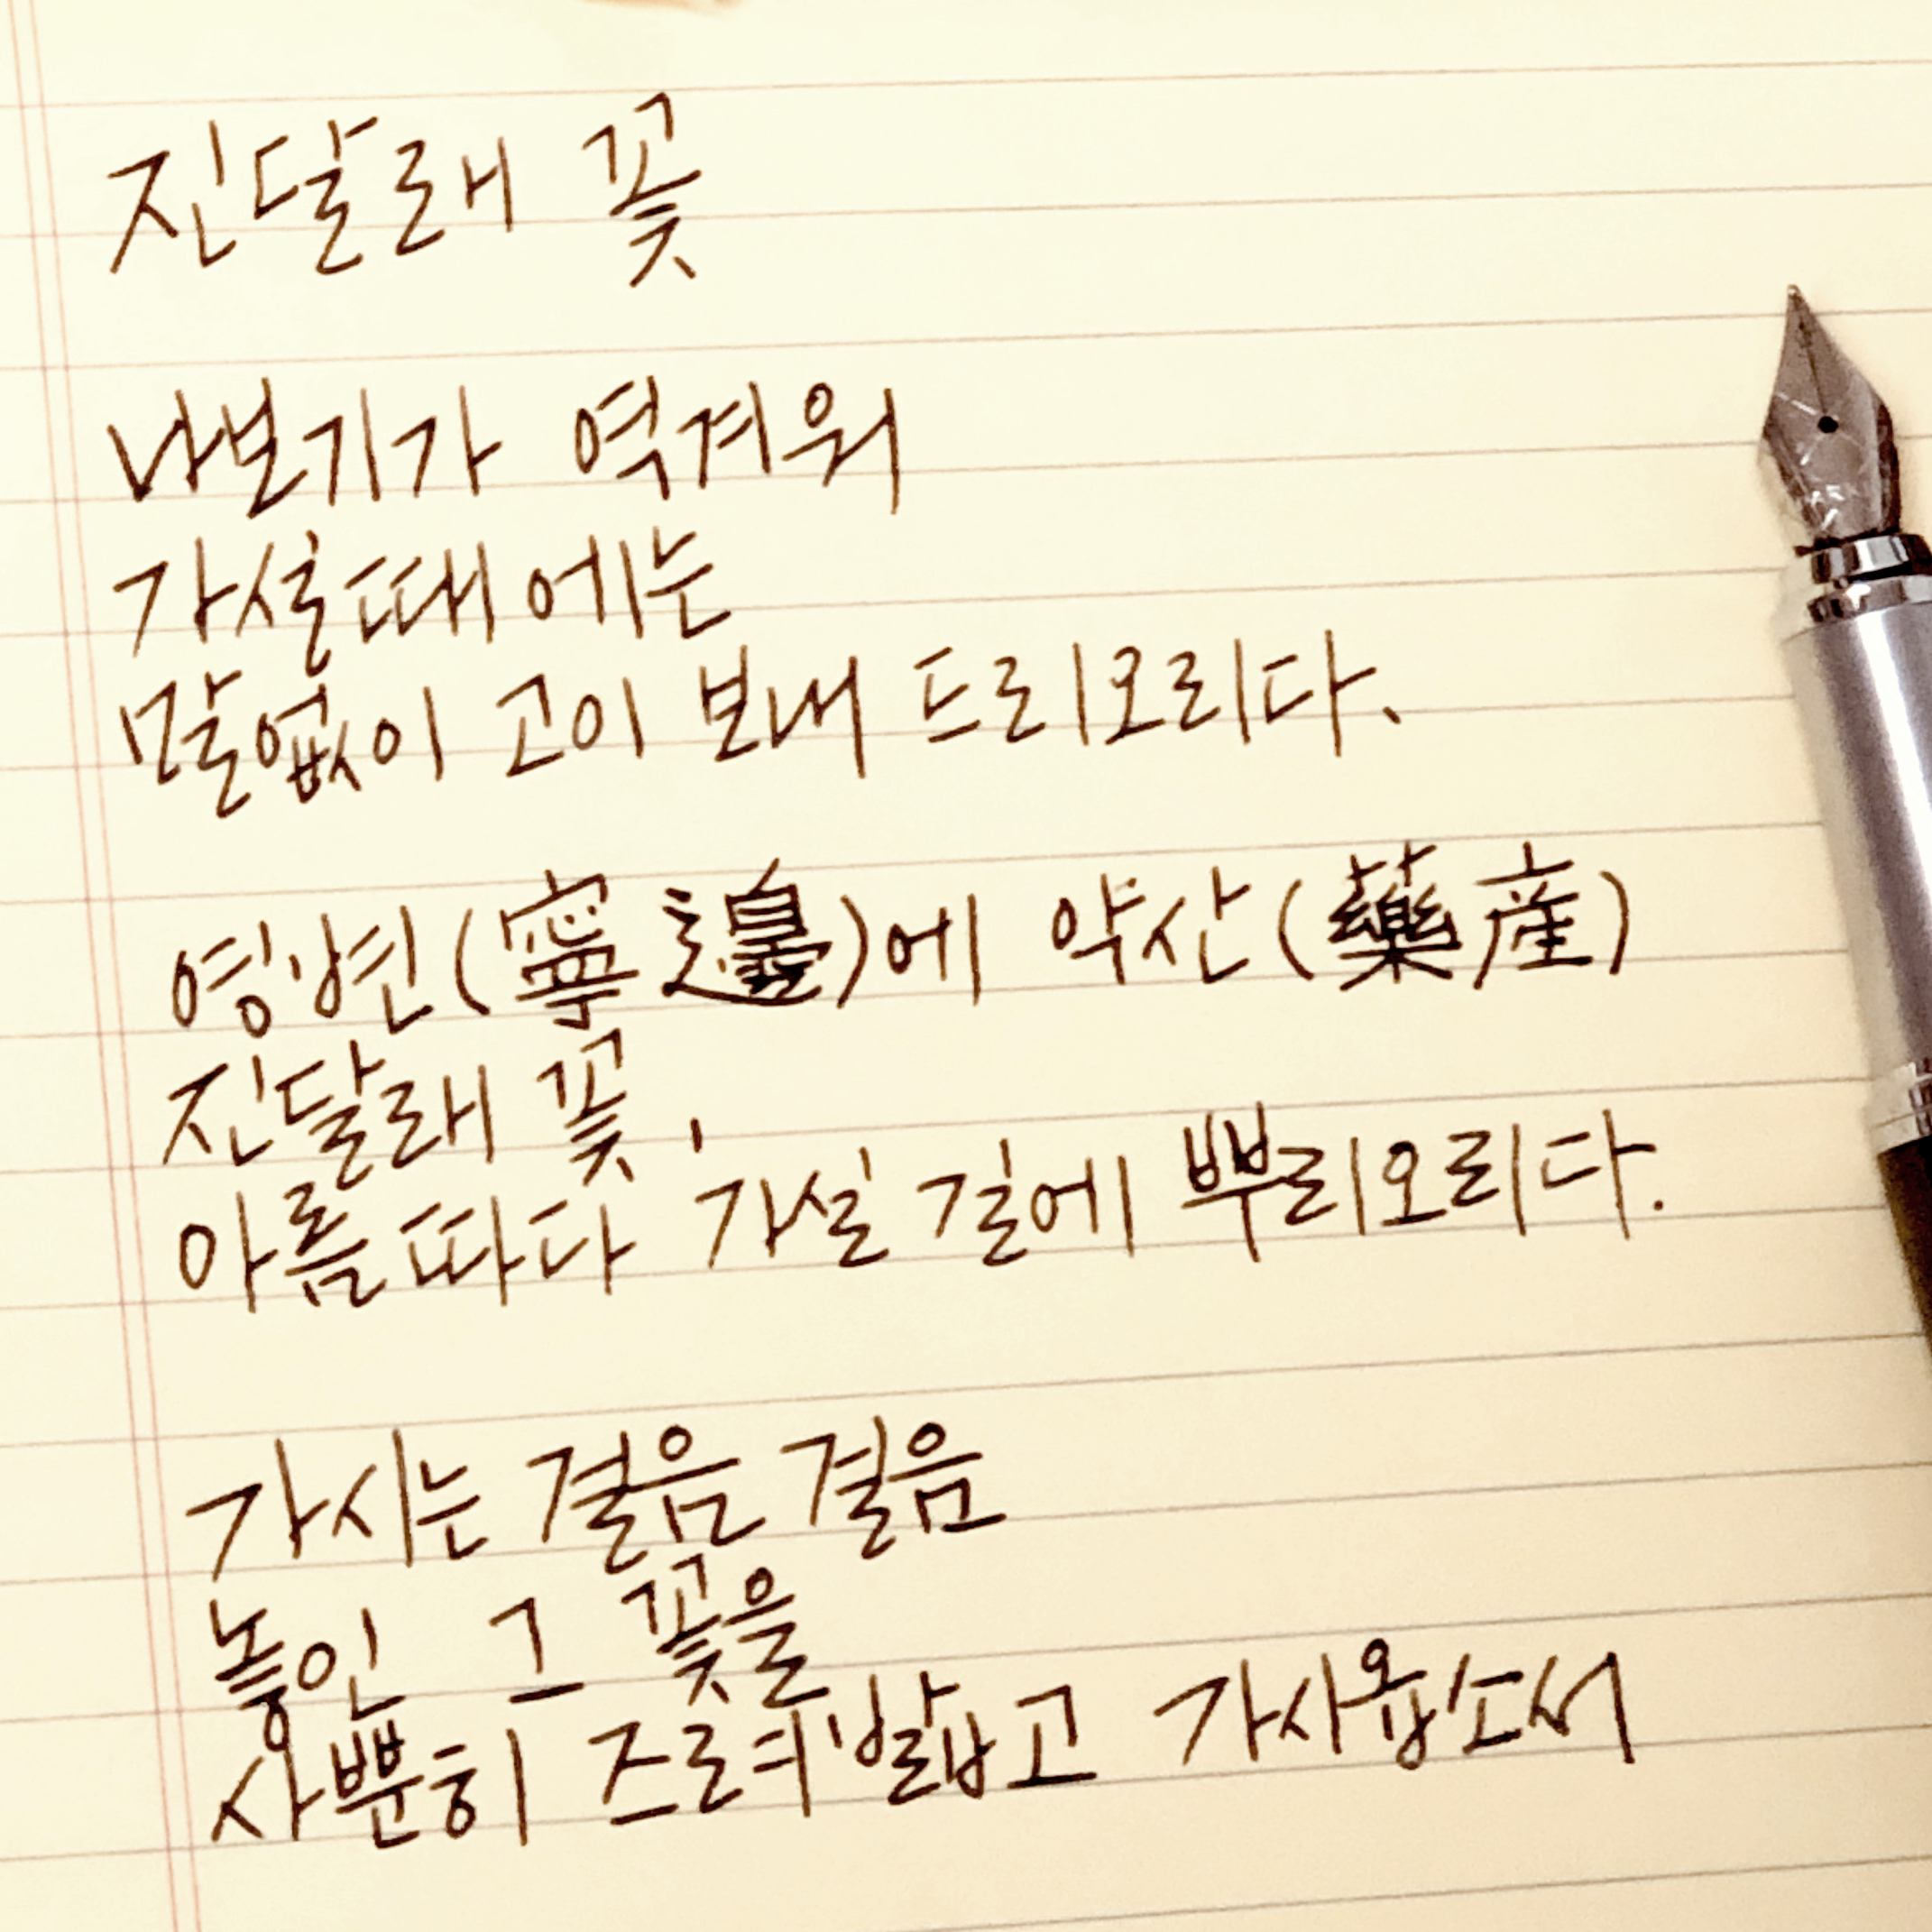 진달래 꽃
나보기가 역겨워
가실때 에는
말없이 고이 보내 드리오리다.
영변(寧邊)에 약산(藥産)
진달래 꽃,
아름따다 가실 길에 뿌리오리다.
가시는 걸음 걸음
놓인 그 꽃을
사뿐히 즈려밟고 가시옵소서